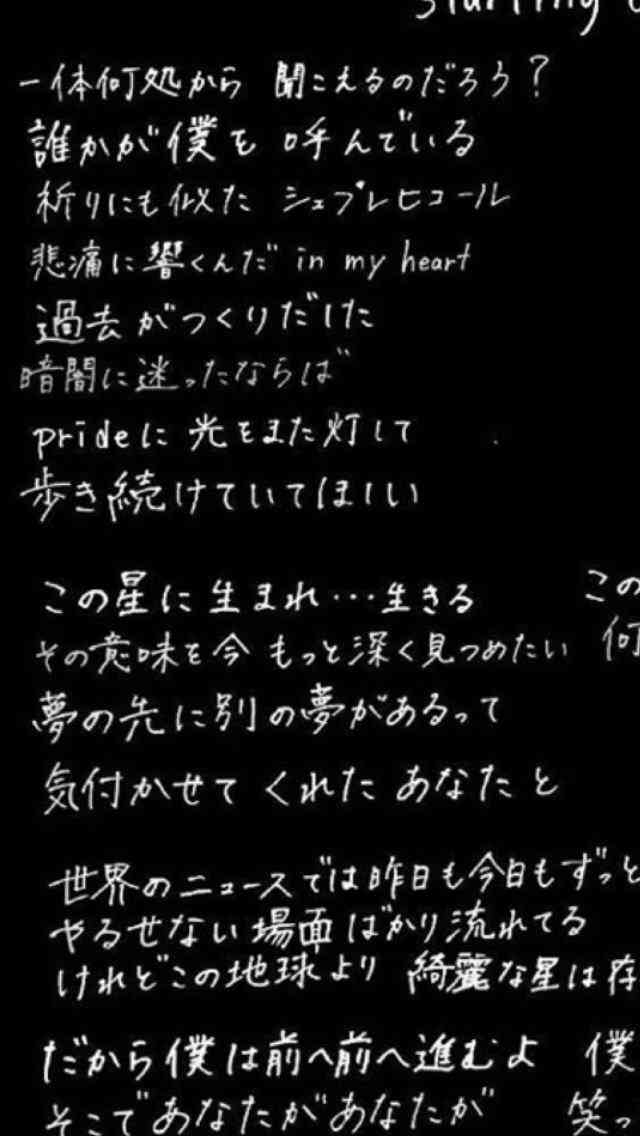 starting
一体何処から 聞こえるのだろう?
誰かが僕を 呼んでいる
祈りにも似た シュプレヒコール
悲痛に響くんだ in my heart
過去がつくりだした
暗闇に迷ったならば
prideに 光をまた灯して
歩き続けていてほしい
この星に生まれ…生きる この
その意味を今 もっと深く見つめたい 何
夢の先に別の夢があるって
気付かせてくれた あなたと
世界のニュースでは昨日も今日もずっと
やるせない場面ばかり流れてる
けれどこの地球より 綺麗な星は存
だから僕は前へ前へ進むよ 僕
そこであなたがあなたが 笑っ